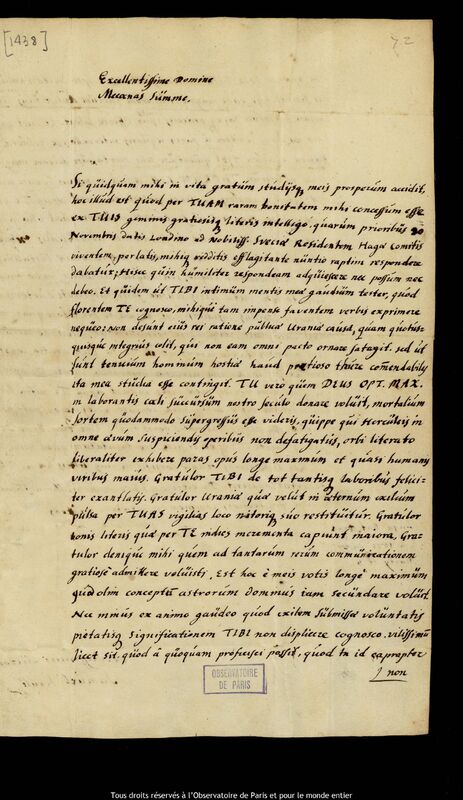 [1438]
72
Excellentissime Domine
Mecænas Summe.
Si quidquam mihi in vita gratum studijsq meis prosperum accidit,
hoc illud est quod per TUAM raram bonitatem mihi concessum esse
ex TUIS geminis gratiosisq literis intelligo, quarum prioribus 20
Novembris datis Londino ad Nobiliss. Sveciæ Residentem Hagæ Comitis
viventem, perlatis, mihiq redditis efflagitante nuntio raptim respondere
dabatur; Hisce quin humiliter respondeam adquiescere nec possum nec
debeo. Et quidem ut TIBI intimum mentis meæ gaudium tester, quod
florentem TE cognosco, mihique tam impense faventem verbis exprimere
nequeo: Non desunt eius rei ratione publicæ Uraniæ causa, quam quotus-
quisque integrius colit, qui non eam omni pacto ornare satagit. sed ut
sunt tenuium hominum hostiæ haud pretioso thure comendabiles
ita mea studia esse contingit. TU vero quem DEUS OPT. MAX.
in laborantis cœli succursum nostro seculo donare voluit, mortalium
sortem quodammodo supergressus esse videris, quippe qui Herculeis in
omne ævum suspiciendis operibus non defatigatus, orbi literato
liberaliter exhibere paras opus longe maximum et quasi humanis
viribus maius. Gratulor TIBI de tot tantisq laboribus felici-
ter exantlatis. Gratulor Uraniæ quæ velut in æternum exilium
pulsa per TUAS vigilias loco natoriq suo restituitur. Gratulor
bonis literis quæ per TE indies incrementa capiunt maiora, Gra-
tulor denique mihi quem ad tantarum rerum communicationem
gratiose admittere voluisti, Est hoc è meis votis longè maximum
quod olim conceptum astrorum Dominus iam secundare voluit.
Nec minus ex animo gaudeo quod exilem submissæ voluntatis
pietatisq significationem TIBI non displicere cognosco. vilissimum
licet sit, quod à quoquam proficisci possit, quod tu id eapropter
non
OBSERVATOIRE
DE PARIS
Tous droits réservés à l'Observatoire de Paris et pour le monde entier